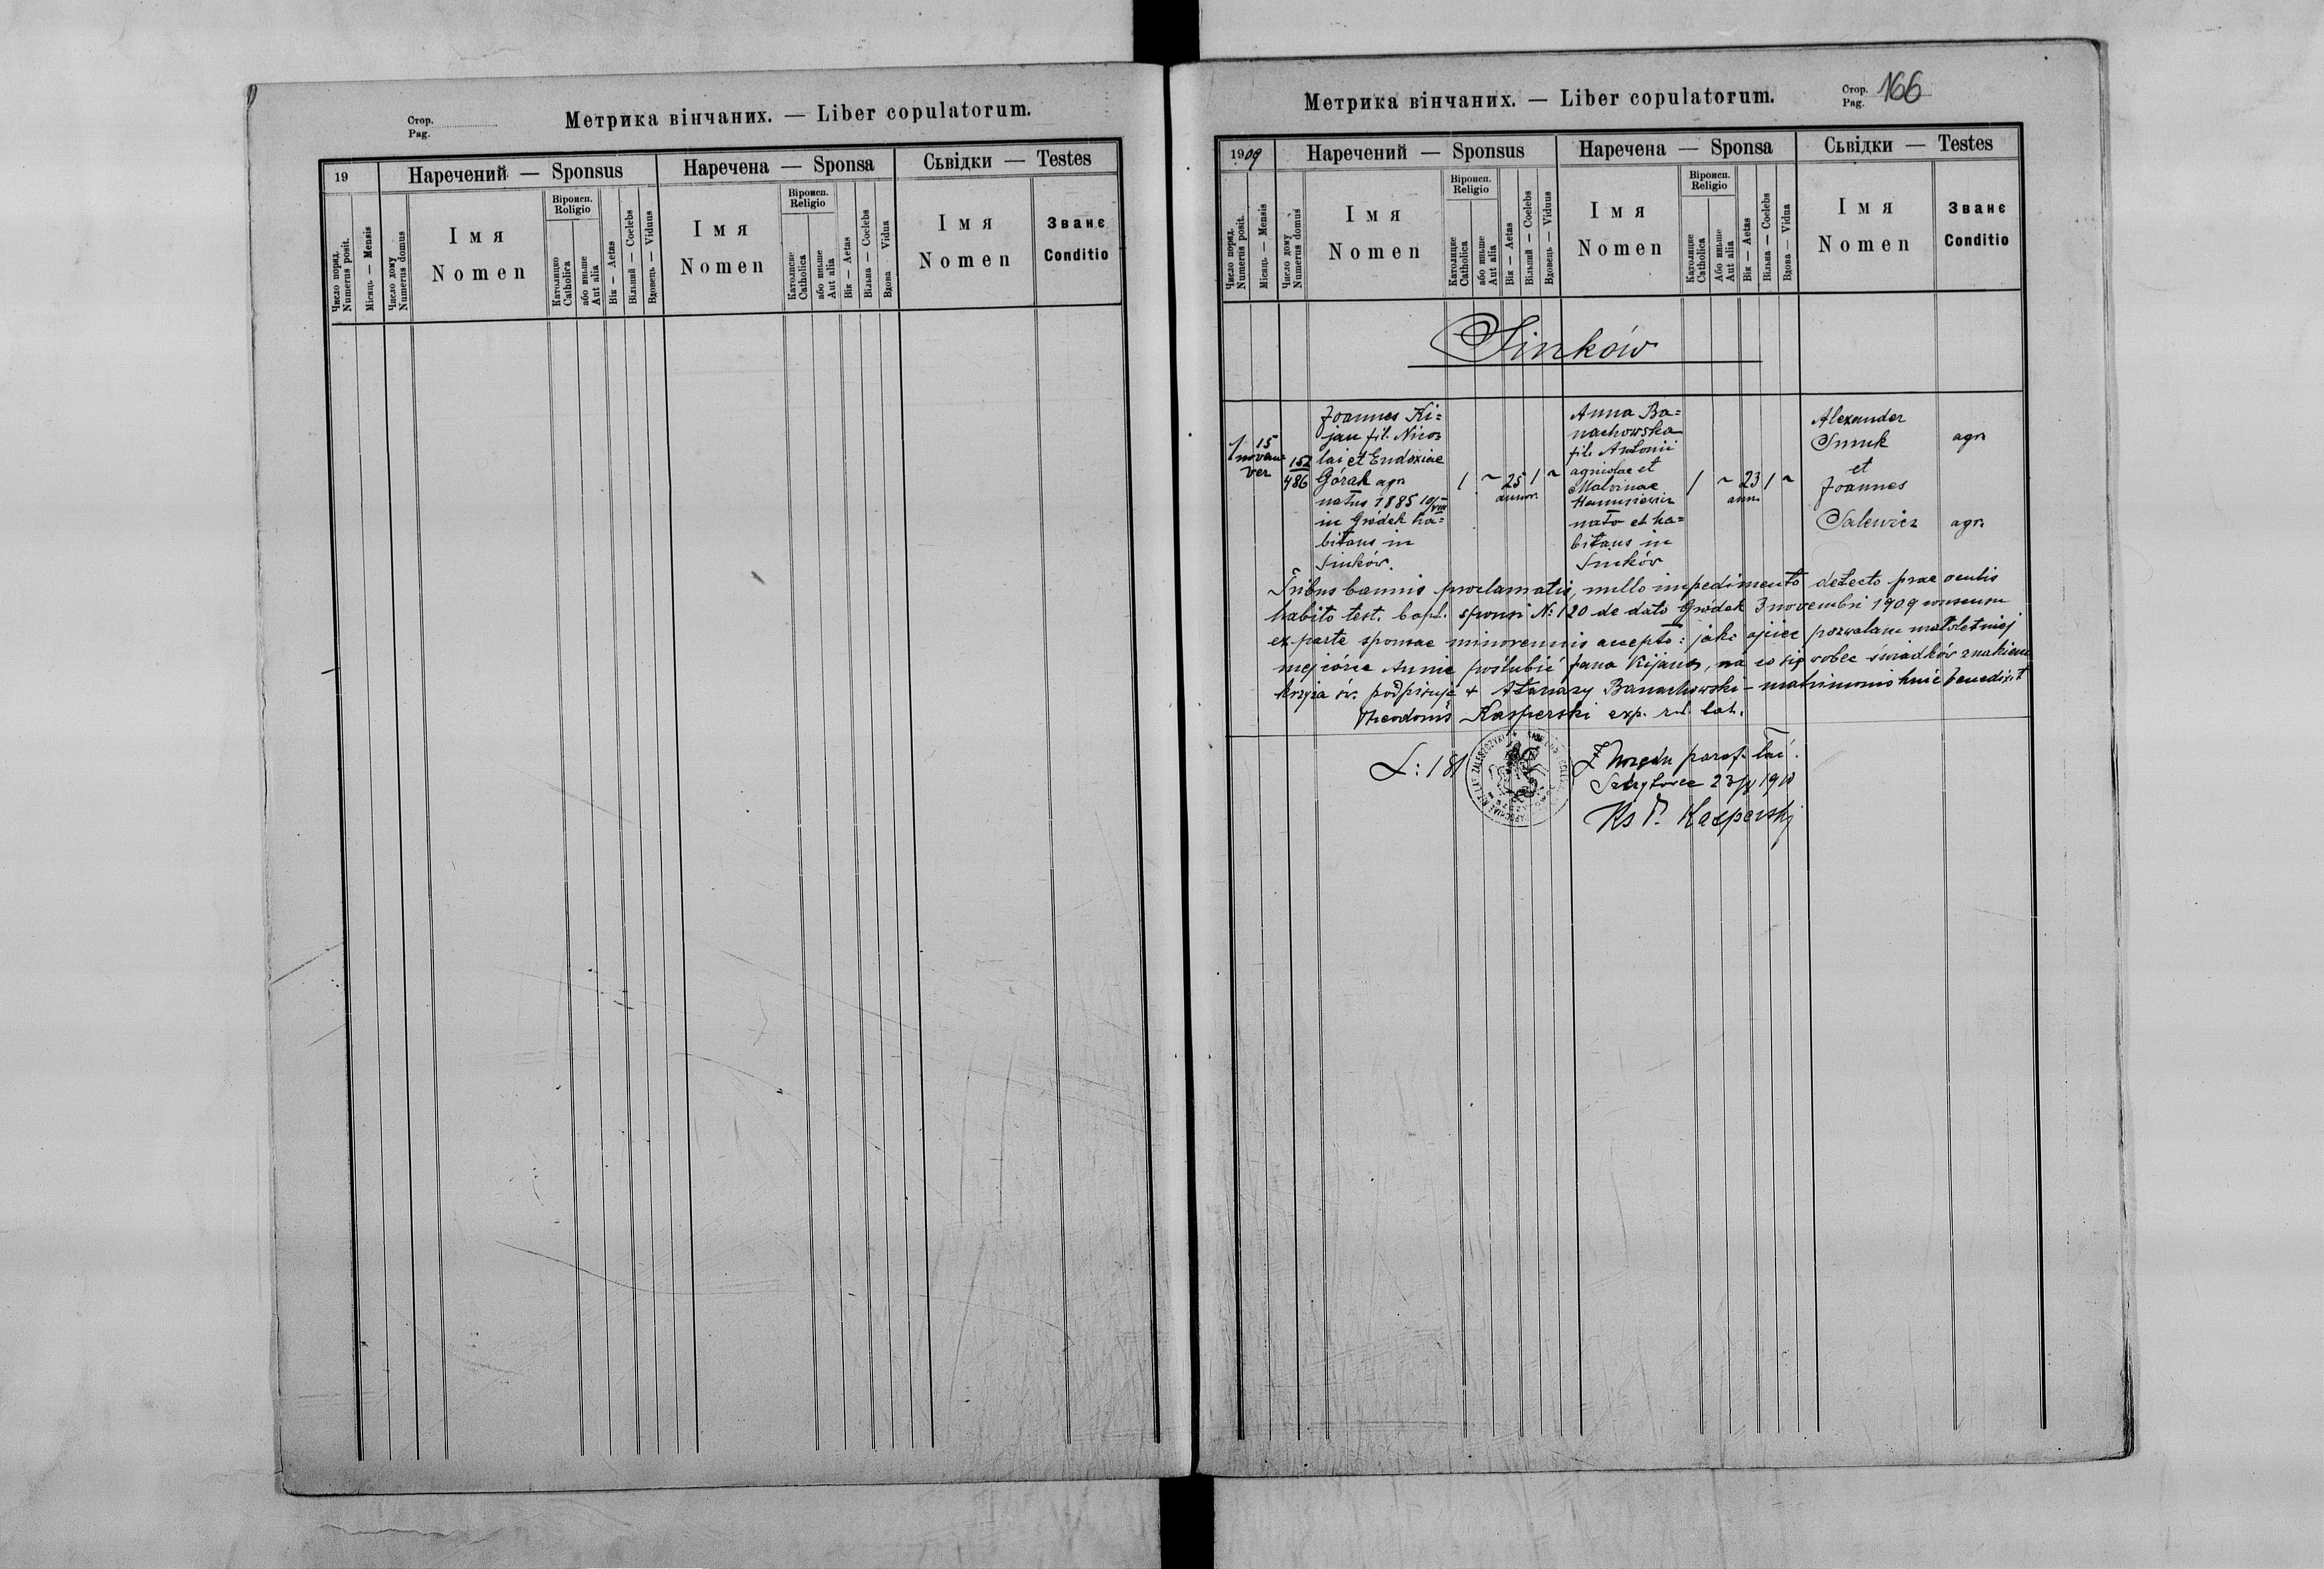 Стор.
Pag.
Метрика вінчаних. — Liber copulatorum.
19
Наречений — Sponsus
Наречена — Sponsa
Сьвідки — Testes
Число поряд.
Numerus posit.
Місяць — Mensis
Число дому
Numerus domus
Імя
Nomen
Віроисп.
Religio
Католицке
Catholica
або иньше
Aut alia
Вік — Aetas
Вільний — Coelebs
Вдовець — Viduus
Імя
Nomen
Віроисп.
Religio
Католицке
Catholica
або иньше
Aut alia
Вік — Aetas
Вільна — Coelebs
Вдова — Vidua
Імя
Nomen
Званє
Conditio
Метрика вінчаних. — Liber copulatorum.
Стор.
Pag.
166
1909
Наречений — Sponsus
Наречена — Sponsa
Сьвідки — Testes
Число поряд.
Numerus posit.
Місяць — Mensis
Число дому
Numerus domus
Імя
Nomen
Віроисп.
Religio
Католицке
Catholica
або иньше
Aut alia
Вік — Aetas
Вільний — Coelebs
Вдовець — Viduus
Імя
Nomen
Віроисп.
Religio
Католицке
Catholica
Або иньше
Aut alia
Вік — Aetas
Вільна — Coelebs
Вдова — Vidua
Імя
Nomen
Званє
Conditio
Sinków
1 15
novem
ver
152
486
Joannes Ki=
jan fil. Nico=
lai et Eudoxiae
Górak agr.
natus 1885 10/VIII
in Gródek ha=
bitans in
Sinków.
1 ~ 25 1 ~
annor.
Anna Ba=
nachowska
fil. Antonii
agricolae et
Malvinae
nata et ha=
bitans in
Sinków
1 ~ 23 1 ~
ann.
Alexander
et
Joannes
Salewicz
agr.
agr.
Tribus bannis proclamatis, nullo impedimento detecto prae oculis
habito test. bapt. sponsi № 120 de dato Gródek 3 novembri 1909 consensu
ex parte sponsae minorennis accepto: jako ojciec pozwalam małoletniej
mej córce Annie poślubić Jana Kijana, na co się wobec świadków znakiem
krzyża św. podpisuję + Atanazy Banachowski — matrimonio huic benedixit
Theodorus Kasperski exp. r. lat.
L: 181
Z Urzędu paraf. łać.
1910
Ks T. Kasperski